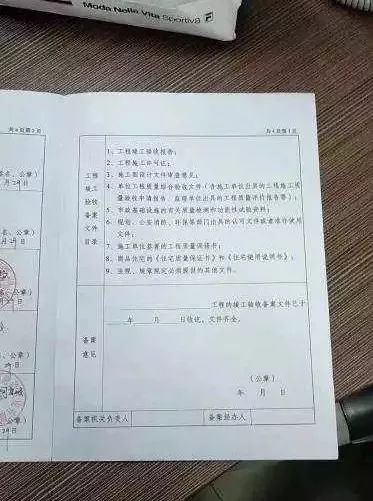 Moda Nella Vita Sportiva
共4页第3页
共4页第4页
名、公章)
月29日
公章)
、公章)
29日
工程
竣工
验收
备案
文件
目录
1、工程竣工验收报告；
2、工程施工许可证；
3、施工图设计文件审查意见；
4、单位工程质量综合验收文件（含施工单位出具的工程施工质
量验收申请报告、监理单位出具的工程质量评价报告等）；
5、市政基础设施的有关质量检测和功能性试验资料；
6、规划、公安消防、环保等部门出具的认可文件或者准许使用
文件；
7、施工单位签署的工程质量保修书；
8、商品住宅的《住宅质量保证书》和《住宅使用说明书》；
9、法规、规章规定必须提供的其他文件。
备案
意见
工程的竣工验收备案文件已于
年 月 日收讫，文件齐全。
(公章)
年 月 日
备案机关负责人
备案经办人